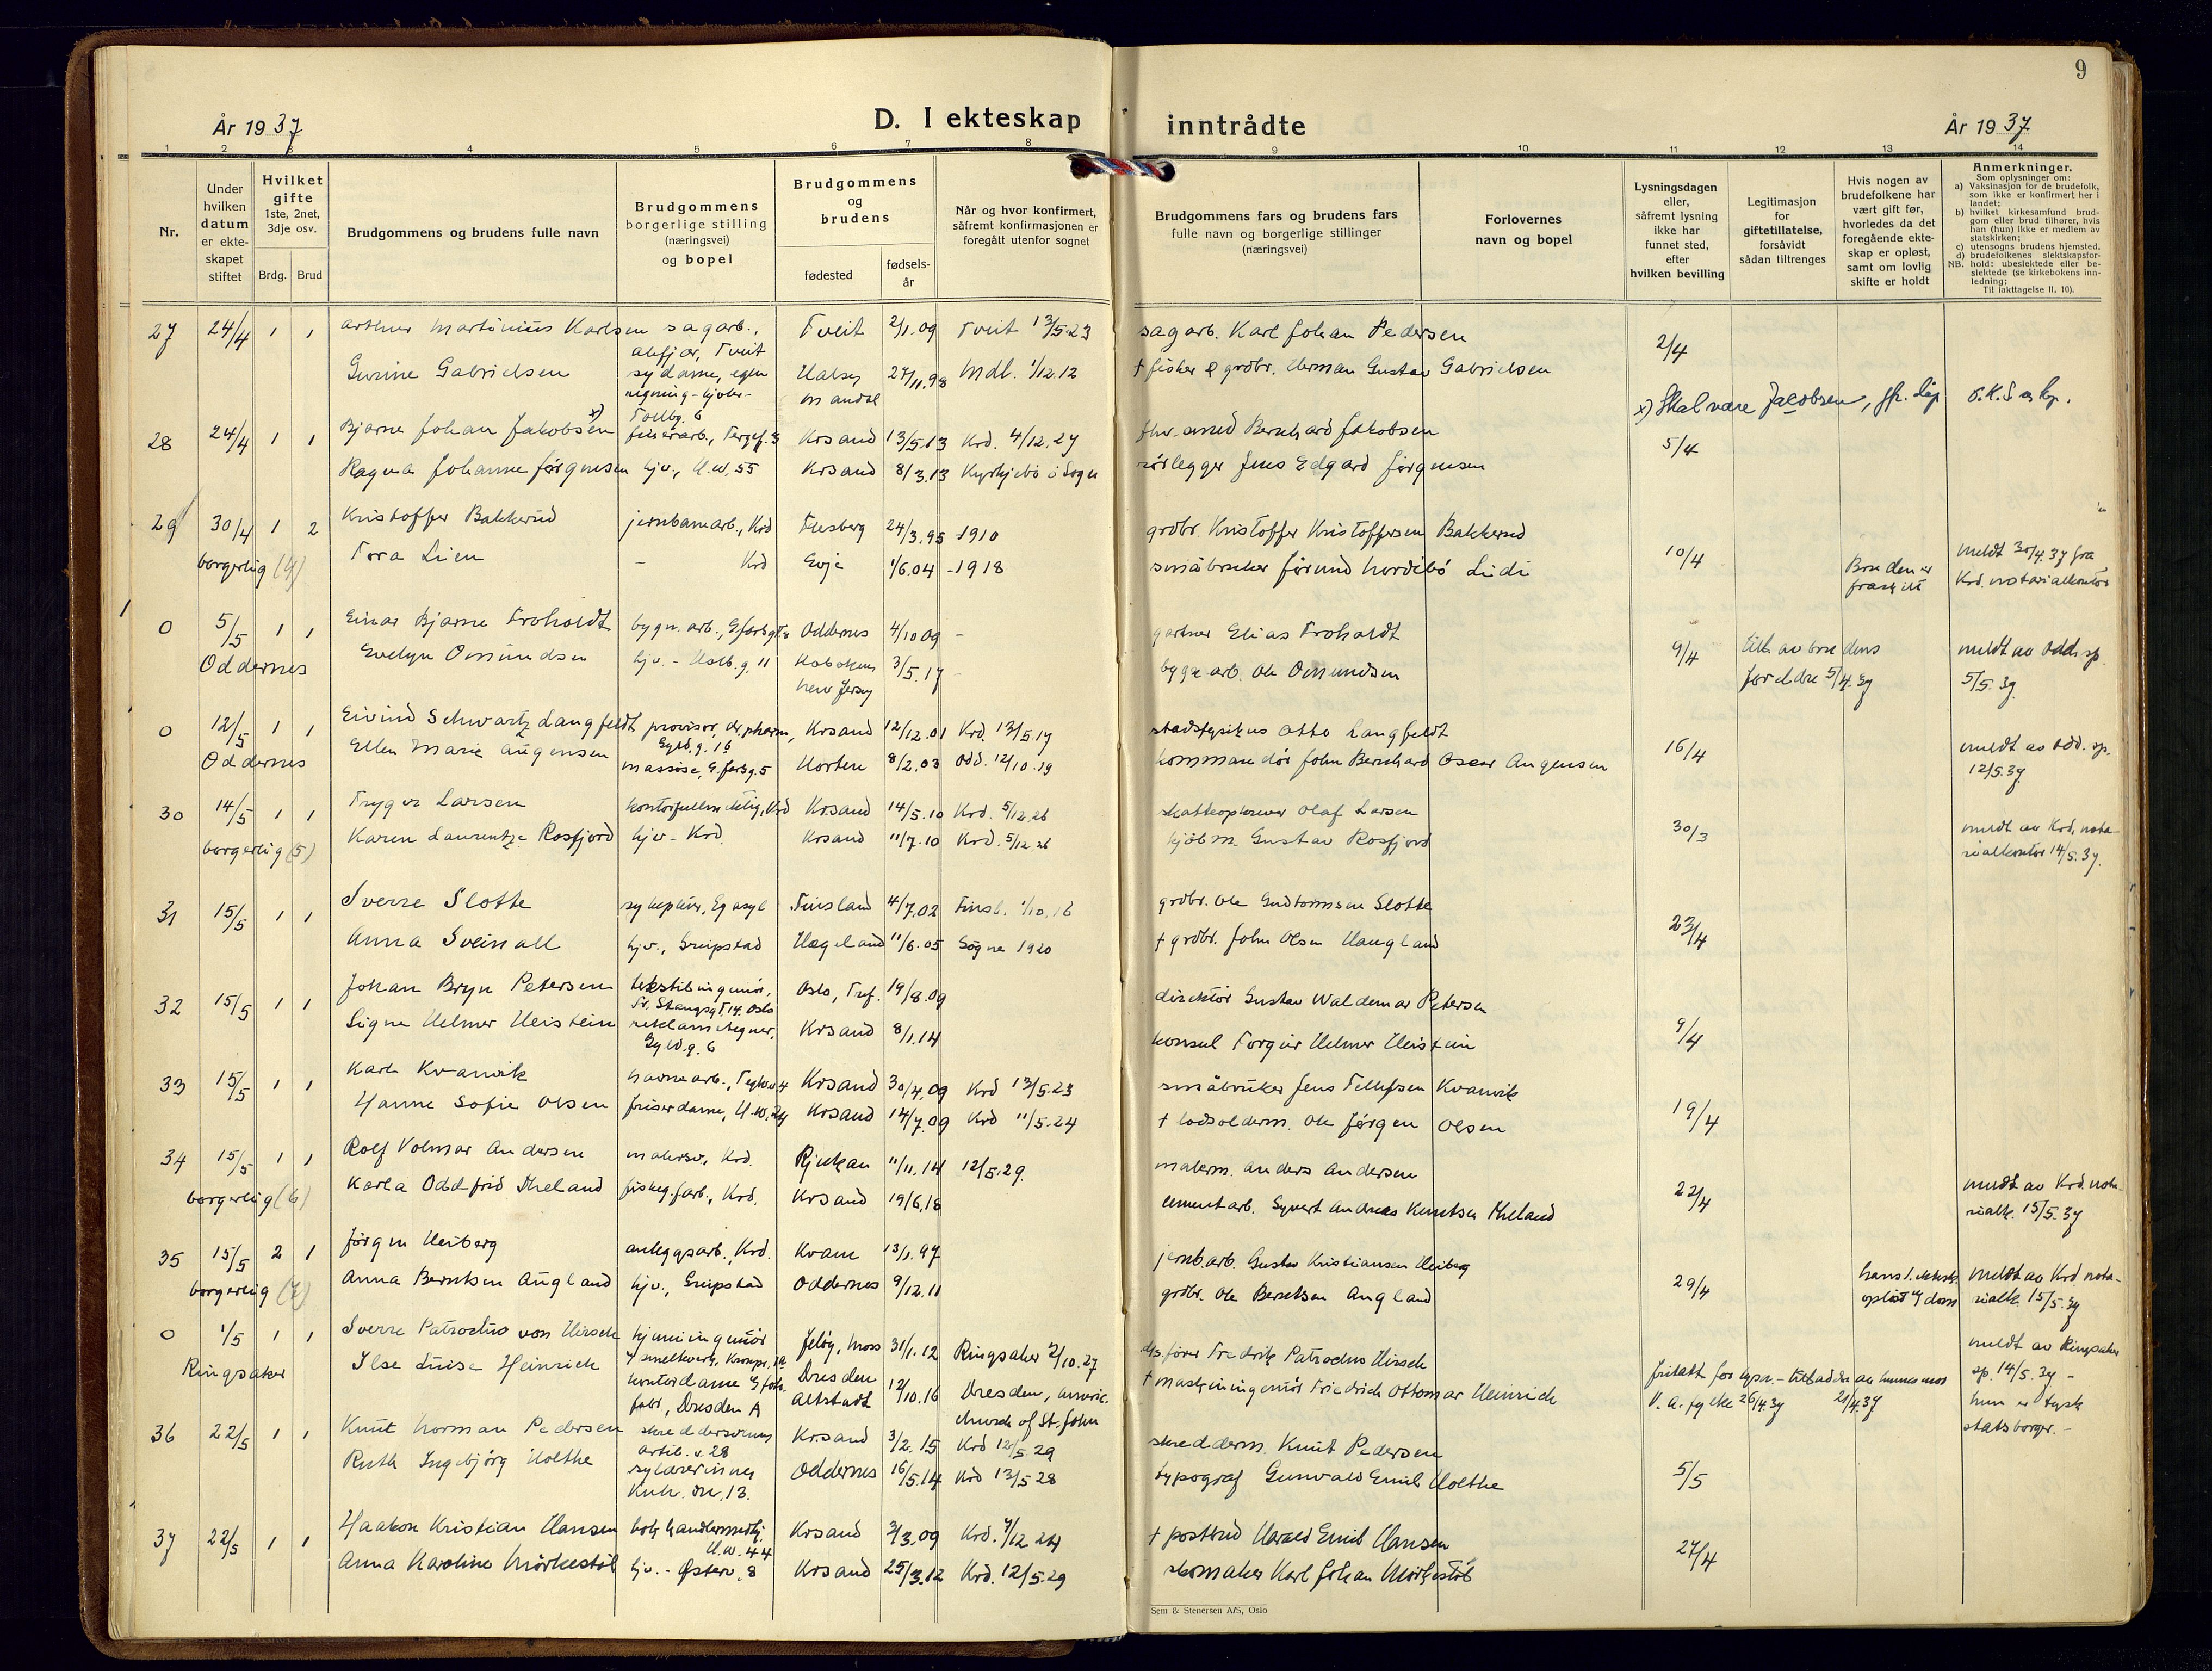 9
År 1937
D. I ekteskap inntrådte
År 1937
1 2 3 4 5 6 7 8 9 10 11 12 13 14
Nr.
Under hvilken datum er ekteskapet stiftet
Hvilket gifte 1ste, 2net, 3dje osv.
Brdg. Brud
Brudgommens og brudens fulle navn
Brudgommens borgerlige stilling (næringsvei) og bopel
Brudgommens og brudens
fødested
fødselsår
Når og hvor konfirmert, såfremt konfirmasjonen er foregått utenfor sognet
Brudgommens fars og brudens fars fulle navn og borgerlige stillinger (næringsvei)
Forlovernes navn og bopel
Lysningsdagen eller, såfremt lysning ikke har funnet sted, efter hvilken bevilling
Legitimasjon for giftetillatelse, forsåvidt sådan tiltrenges
Hvis nogen av brudefolkene har vært gift før, hvorledes da det foregående ekteskap er opløst, samt om lovlig skifte er holdt
Anmerkninger.
Som oplysninger om:
a) Vaksinasjon for de brudefolk, som ikke er konfirmert her i landet;
b) hvilket kirkesamfund brudgom eller brud tilhører, hvis han (hun) ikke er medlem av statskirken;
c) utensogns brudens hjemsted.
d) brudefolkenes slektskapsforhold: ubeslektede eller beslektede (se kirkebokens innledning;
NB. Til iakttagelse II, 10).
27 24/4 1 1 Arthur Martinius Karlsen sagarb., Tveit 2/1.09 Tveit 13/5.23 sagarb. Karl Johan Pedersen 2/4
Alefjær, Tveit
Gurine Gabrielsen sydame, egen Halsey Mandal 27/11.98 Mdl. 1/12.12 † fisker & grdbr. Herman Gustav Gabrielsen
regning - hjv. Tollbg. 6
x) Skal være Jacobsen,
28 24/4 1 1 Bjarne Johan Jakobsen x) finerarb., Krsand 13/5.13 Krd. 4/12.27 Bernhard Jakobsen 5/4
Ragna Johanne Jørgensen hjv., H.w. 55 Krsand 8/3.13 Kyrkjebø i Sogn rørlegger Jens Edgard Jørgensen
29 30/4 1 2 Kristoffer Bakkerud jernbanearb., Krd Flesberg 24/3.95 -1910 grdbr. Kristoffer Kristoffersen Bakkerud 10/4
borgerlig (4) Tora Lien - Krd Evje 1/6.04 -1918 småbruker Jørund Nordibø Bruden er fraskilt meldt 30/4.37 fra Krd. notarialkontor
0 5/5 1 1 Einar Bjarne Froholdt bygn.arb., Oddernes 4/10.09 - gartner Elias Froholdt 9/4 till. av brudens foreldre 5/4.37 meldt av Odd. sp. 5/5.37
Oddernes Evelyn Omundsen hjv. - Holb.g. 11 Hoboken New Jersey 3/5.17 - bygn.arb. Ole Omundsen
0 12/5 1 1 Eivind Schwartz Langfeldt provisor, dr. pharm., Krsand 12/12.01 Krd. 13/5.17 stadsfysikus Otto Langfeldt 16/4 meldt av Odd. sp. 12/5.37
Gyld.g. 16
Oddernes Ellen Marie Augensen massøse, Horten 8/2.03 Odd. 12/10.19 kommandør John Bernhard Oscar Augensen
30 14/5 1 1 Trygve Larsen kontorfullmektig, Krd Krsand 14/5.10 Krd. 5/12.26 skatteopkrever Olaf Larsen 30/3
borgerlig (5) Karen Laurentze Rosfjord hjv - Krd. Krsand 11/7.10 Krd. 5/12.26 kjøbm. Gustav Rosfjord meldt av Krd. notarialkontor 14/5.37.
31 15/5 1 1 Sverre Slotte sykepleier, Eg asyl Finsland 4/7.02 Finsl. 1/10.16 grdbr. Ole Gudtormsen Slotte 23/4
Anna Sveinall hjv., Greipstad Hægeland 11/6.05 Søgne 1920 † grdbr. John Olsen Haugland
32 15/5 1 1 Johan Bryn Petersen tekstilingeniør, Oslo, Tref. 19/8.09 direktør Gustav Waldemar Petersen 9/4
Fr. Stangsgt. 14. Oslo
Signe Helmer Heistein reklametegner, Krsand 8/1.14 konsul Torgeir Helmer Heistein
Gyld.g. 6
33 15/5 1 1 Karl Kvarvik havnearb., Krsand 30/4.09 Krd 13/5.23 småbruker Jens Tellefsen Kvarvik 19/4
Hanne Sofie Olsen friserdame, H.w. 24 Krsand 14/7.09 Krd 11/5.24 † lodsolderm. Ole Jørgen Olsen
34 15/5 1 1 Rolf Volmar Andersen malersv., Krd. Rjukan 11/11.14 12/5.29. malerm. Anders Andersen 22/4
borgerlig (6) Karla Oddfrid Meland fiskeg.farb., Krd. Krsand 19/6.18 cementarb. Syvert Andreas Knutsen Meland meldt av Krd. notarialk. 15/5.37
35 15/5 2 1 Jørgen Heiberg anleggsarb., Krd. Kvam 13/1.97 jernb.arb. Gustav Kristiansen Heiberg 29/4 hans 1. ekteskap opløst v/ dom meldt av Krd. notarialk. 15/5.37
borgerlig (7) Anna Berntsen Augland hjv., Greipstad Oddernes 9/12.11 grdbr. Ole Berntsen Augland
0 1/5 1 1 Sverre Patroclus von Hirsch kjemiingeniør Jeløy, Moss 31/1.12 Ringsaker 2/10.27 Fredrik Patroclus Hirsch meldt av Ringsaker sp. 14/5.37 - hun er tysk statsborger. -
Ringsaker Ilse Luise Heinrich kontordame Dresden A Dresden Altstadt 12/10.16 Dresden, americ. church of St. John † maskiningeniør Friedrich Ottomar Heinrich
36 22/5 1 1 Knut Norman Pedersen skreddersvenn, artill.v. 28 Krsand 3/2.15 Krd 12/5.29 skredderm. Knut Pedersen 5/5
Ruth Ingebjørg Holthe sylærerinne, Kuh. 13. Oddernes 16/5.14 Krd 13/5.28 typograf Gunvald Emil Holthe
37 22/5 1 1 Haakon Kristian Hansen bokhandlermedhj. H.w. 44 Krsand 2/3.09 Krd. 7/12.24 † postbud Harald Emil Hansen 27/4
Anna Karoline Mørkestøl hjv. - Østerv. 8 Krsand 25/3.12 Krd. 12/5.29 skomaker Karl Johan Mørkestøl
Sem & Stenersen A/S, Oslo